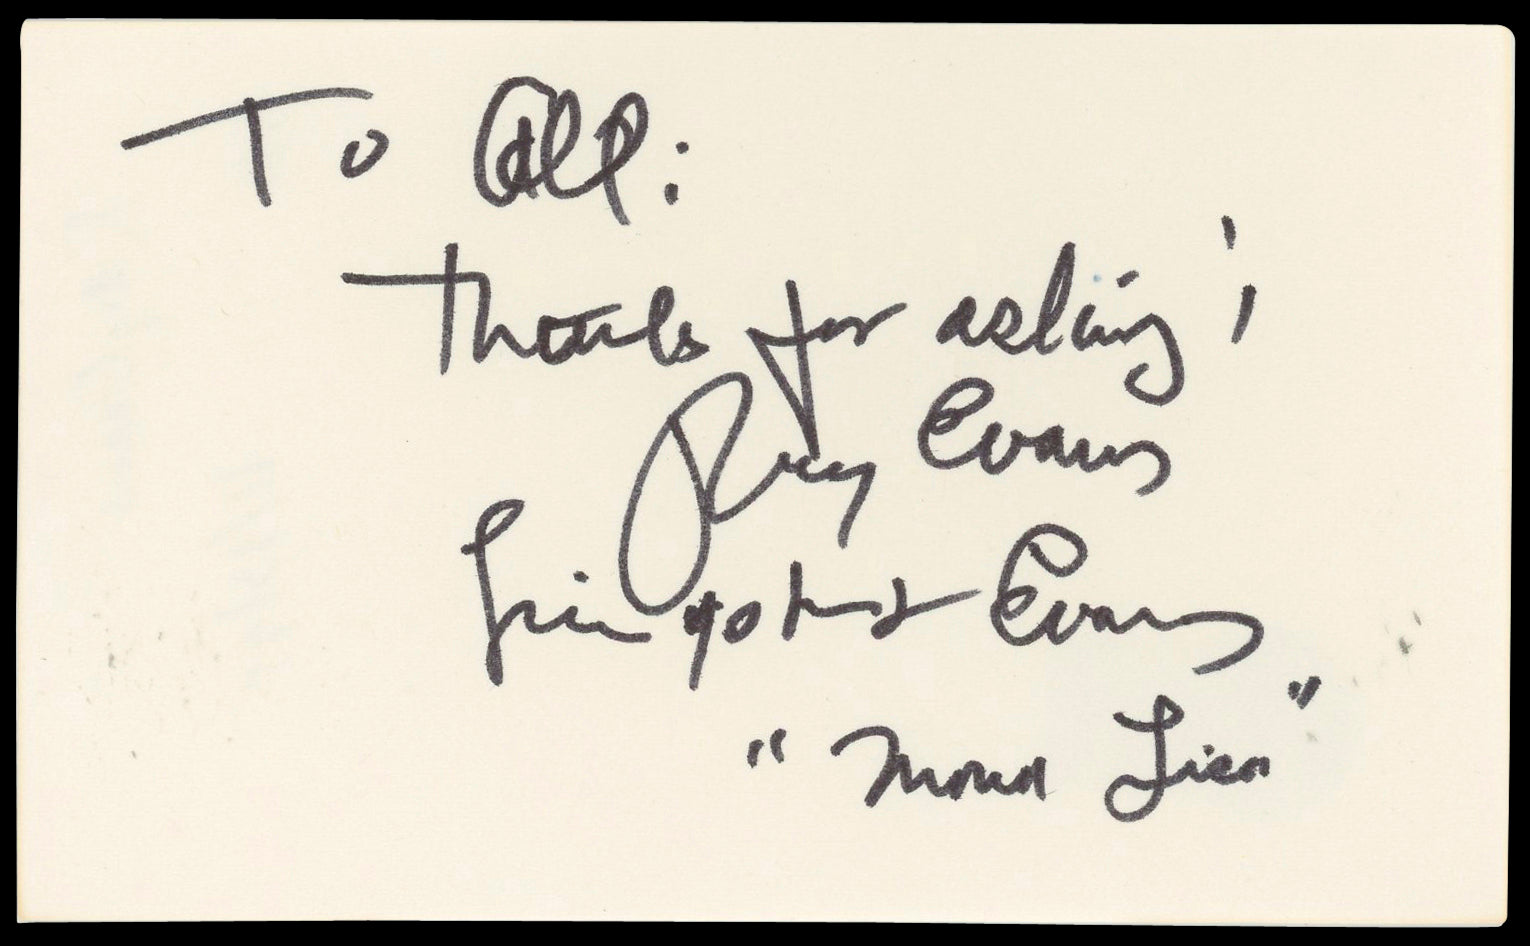 To All:
Thanks for asking!
Ray Evans
Livingston & Evans
"Mona Lisa"